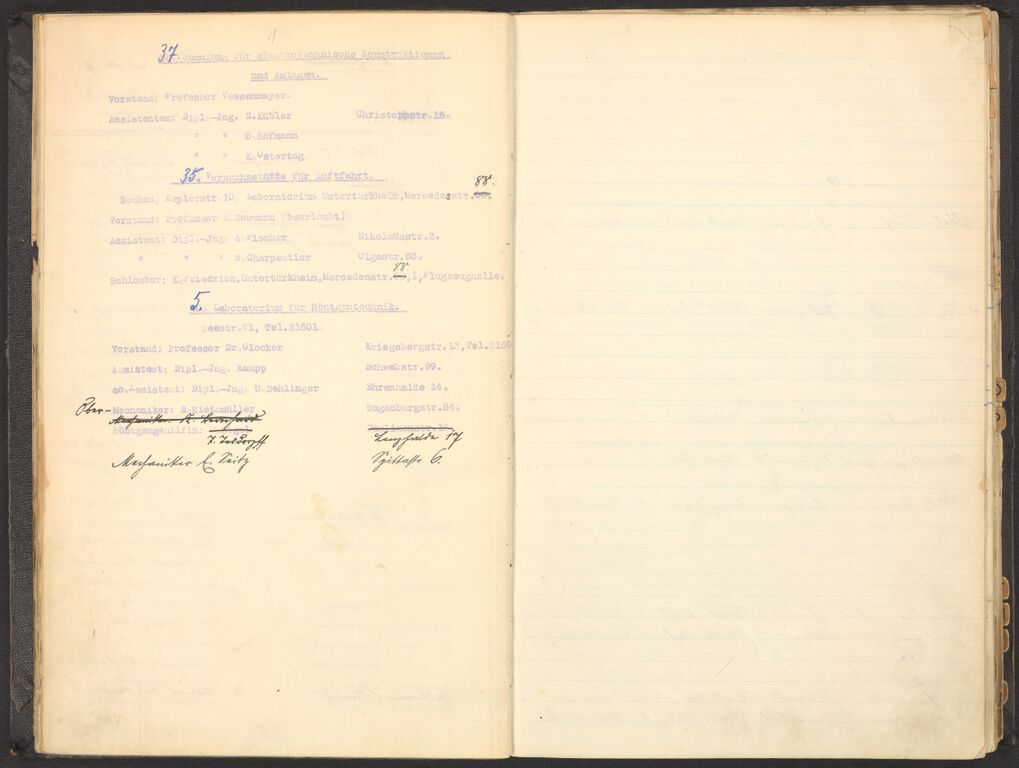 37. Sammlung für elektrotechnische Konstruktionen
und Anlagen.
Vorstand: Professor Veesenmeyer.
Assistenten: Dipl.-Jng. E.Kübler Christophstr.16.
" " O.Hofmann
" " K.Ostertag
35. Versuchsstätte für Luftfahrt.
Neubau, Keplerstr.10, Laboratorium Untertürkheim,Mercedesstr. 88.
Vorstand: Professor A.Baumann (beurlaubt)
Assistent: Dipl.-Jng. A.Fischer Nikolausstr.2.
" " " W.Charpentier Olgastr.83.
Schlosser: K.Friedrich,Untertürkheim,Mercedesstr. 88,I,Flugzeughalle.
5. Laboratorium für Röntgentechnik.
Seestr.71, Tel.21601.
Vorstand: Professor Dr.Glocker Kriegsbergstr.15,Tel.2160
Assistent: Dipl.-Jng. Kaupp Schwabstr.99.
ao.Assistent: Dipl.-Jng. U.Dehlinger Ehrenhalde 14.
Ober-Mechaniker: R.Bietenmüller Wagenburgstr.84.
Mechaniker K.
Röntgengehilfin: Paulinenstr.
Lenzhalde 17
Mechaniker E. Seitz Spittastr 6.